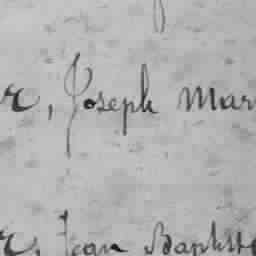 r, Joseph Mar
r, Jean Baptist